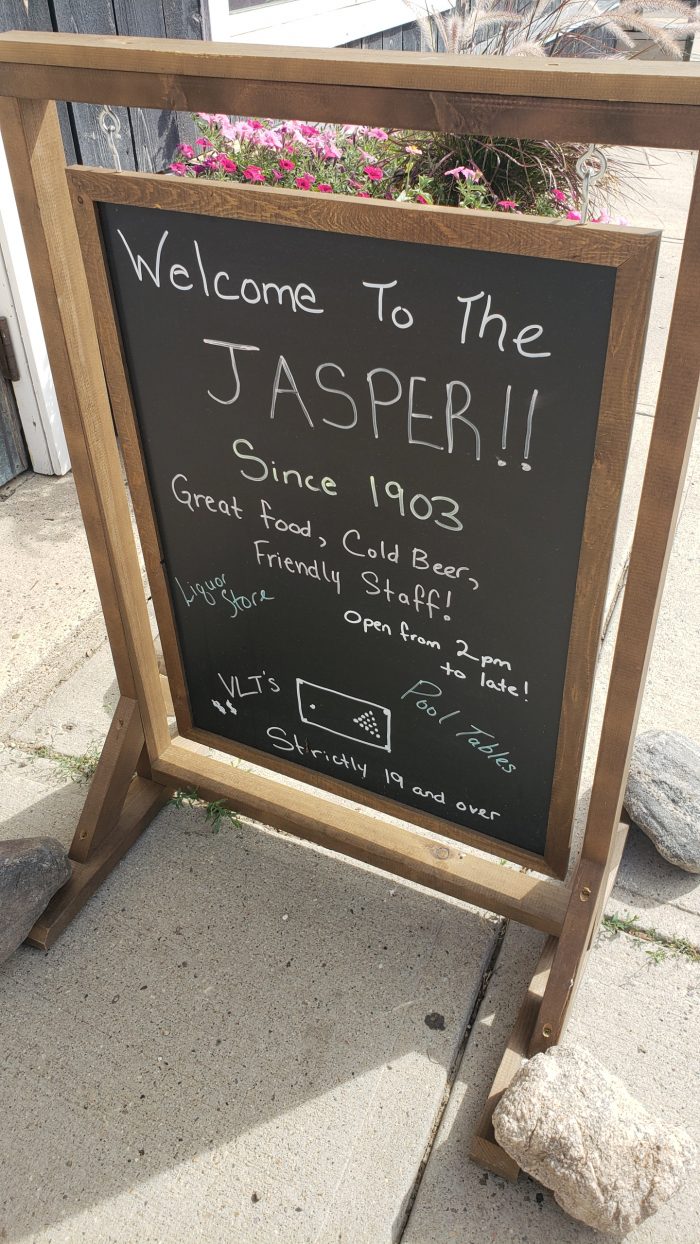 Welcome To The
JASPER!!
Since 1903
Great food, Cold Beer,
Friendly Staff!
Liquor
Store
Open from 2pm
to late!
VLT's
$$
Pool Tables
Strictly 19 and over